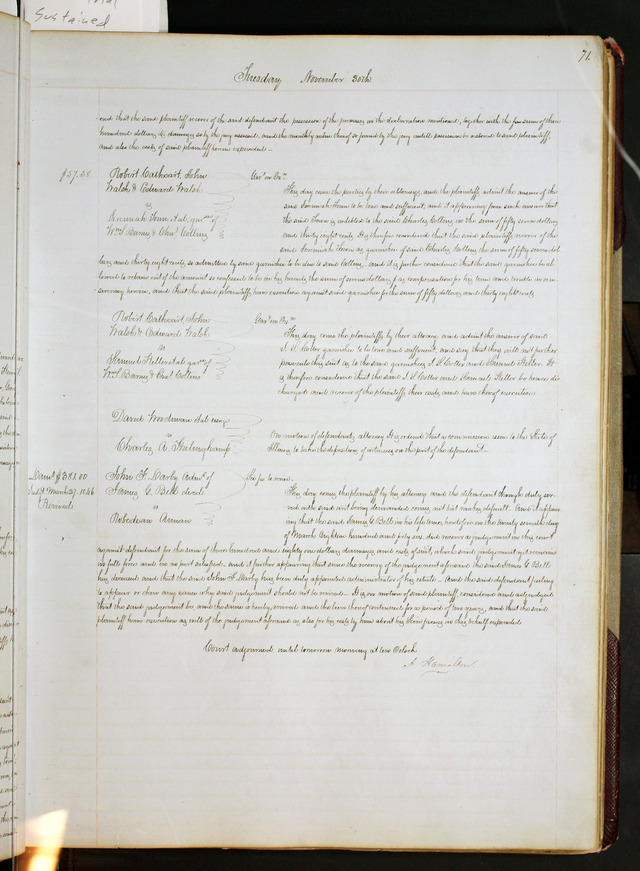 Sustained
71.
Tuesday November 30th
and that the said plaintiff recover of the said defendant the possession of the premises in the declaration mentioned, together with the sum of three
hundred dollars damages by the jury assessed, and the monthly value thereof as found by the jury until possession be restored to said plaintiff
and also the costs of said plaintiff herein expended
$57.38
Robert Cathcart, John
Walsh & Edward Walsh
vs
Jeremiah
Wm S Barney & Chas Collins
Gar on Exn
This day come the parties by their attorneys, and the plaintiffs admit the answer of the
said Jeremiah to be true and sufficient, and it appearing from such answer that
the said is indebted to the said Charles Collins in the sum of fifty seven dollars
and thirty eight cents It is therefore considered that the said plaintiffs recover of the
said Jeremiah as garnishee of said Charles Collins the sum of fifty seven dol
lars and thirty eight cents so admitted by said garnishee to be due to said Collins, and it is further considered that the said garnishee be al
lowed to retain out of the amount so confessed to be in his hands the sum of seven dollars as compensation for his time and trouble in an
swering herein, and that the said plaintiffs have execution against said garnishee for the sum of fifty dollars and thirty eight cents
Robert Cathcart, John
Walsh & Edward Walsh
vs
Samuel Keller et al gar of
Wm S Barney & Chas Collins
Gar on Exn
This day come the plaintiffs by their attorney and admit the answer of said
garnishee to be true and sufficient, and say that they will not further
prosecute this suit as to the said garnishees and Samuel Keller It
is therefore considered that the said and Samuel Keller be hence dis
charged and recover of the plaintiffs their costs and have thereof execution
David Woodman et al
vs
Charles A
On motion of defendants attorney It is ordered that a commission issue to the State of
Illinois to take the deposition of witnesses on the part of the defendant
Dam $381.00
Judgt March 27. 1846
Revived
John F. Darby Admr of
James G. Bell decd
vs
Robedeau
Sci fa to revive
This day comes the plaintiff by his attorney and the defendant though duly ser
ved with said writ being demanded comes not but makes default And it appear
ing that the said James G. Bell in his life time, heretofore on the twenty seventh day
of March Eighteen hundred and forty six, did recover a judgment in this court
against defendant for the sum of three hundred and eighty one dollars, damages and costs of suit, which said judgment yet remains
in full force and in no part satisfied, and it further appearing that since the recovery of the judgment aforesaid the said James G. Bell
has deceased and that the said John F. Darby has been duly appointed administrator of his estate And the said defendant failing
to appear or show any cause why said judgment should not be revived It is on motion of said plaintiff considered and adjudged
that the said judgment be and the same is hereby revived and the lien thereof continued for a period of two years, and that the said
plaintiff have execution as well of the judgment aforesaid as also for his costs by him about his in this behalf expended
Court adjourned until tomorrow morning at ten Oclock
A. Hamilton